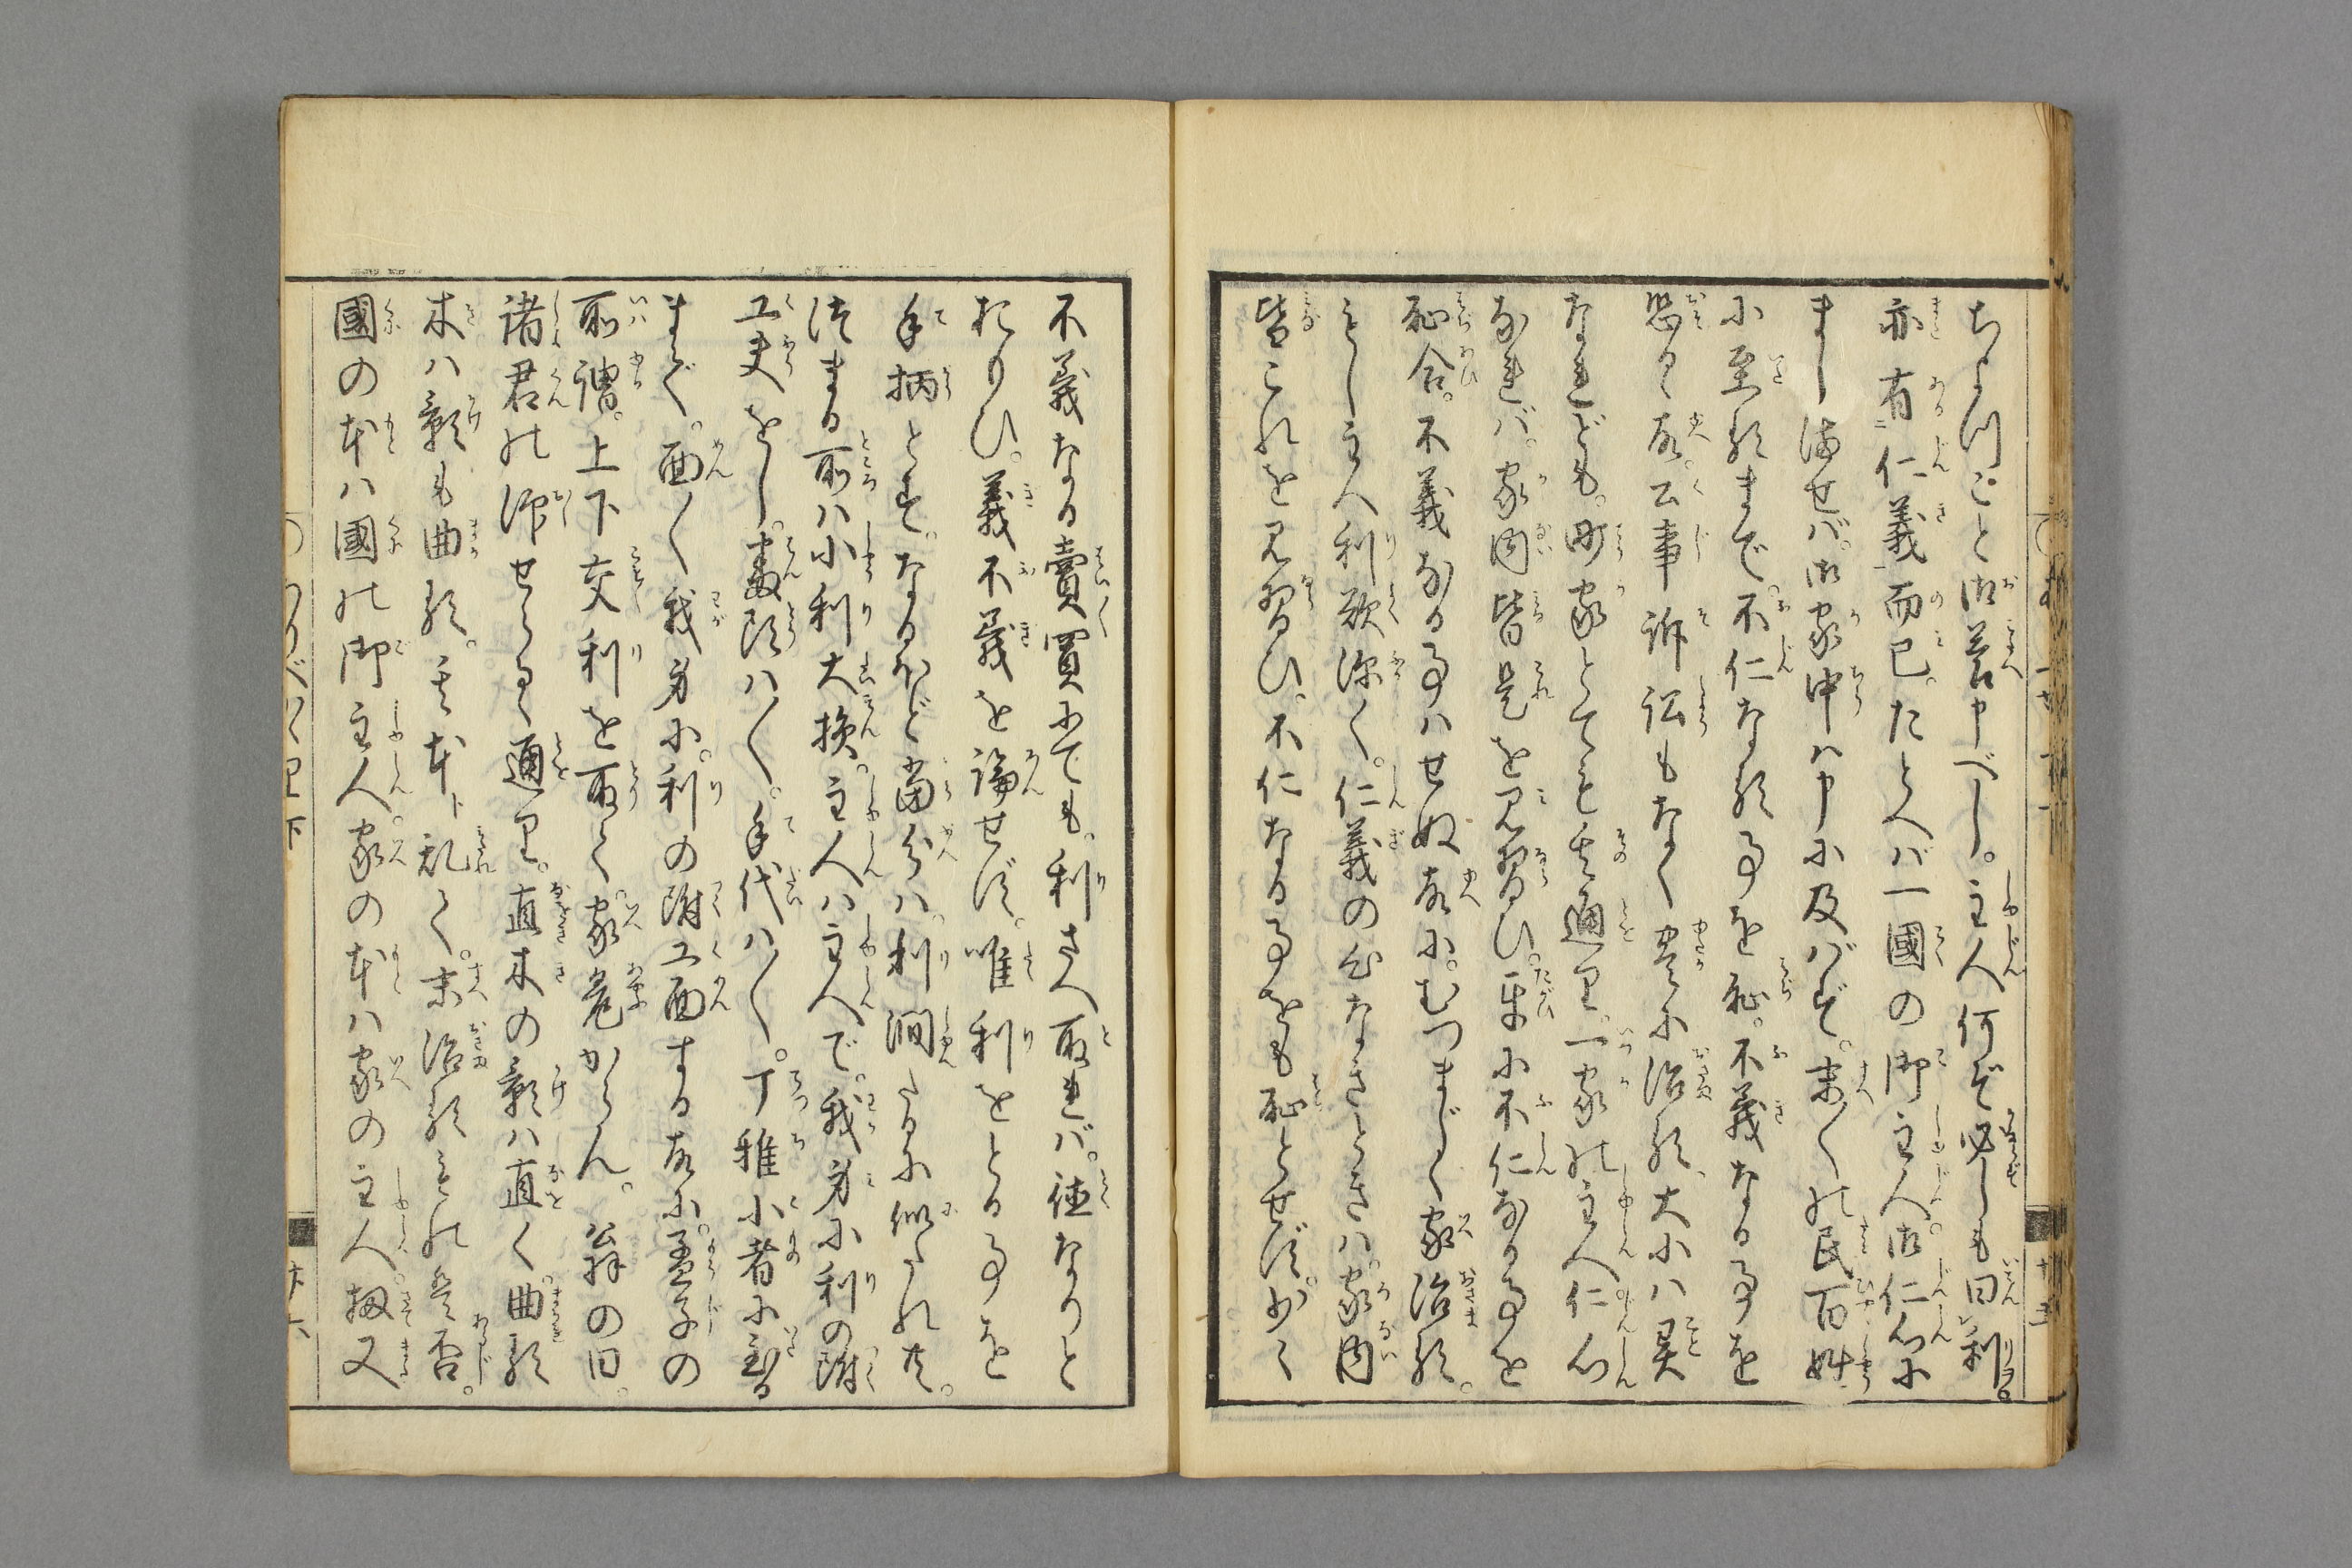 ちよつこと御答申べし。主人何ぞ必しも曰利。
亦有仁義而已。たとへバ一國の御主人。御仁心に
まし満せバ。御家中ハ申に及バず。末〱の民百姓
に至るまで。不仁なる事を恥。不義なる事を
恐るゝ故。公事訴訟もなく豊に治る。大小ハ異
なれども。町家とても其通里。一家の主人仁心
なれバ。家内皆是を見習ひ。互に不仁なる事を
恥合。不義なる事ハせぬ故に。むつまじく家治る。
もし主人利欲深く。仁義の心なきときハ。家内
皆これを見習ひ。不仁なる事をも恥とせず。少く
不義なる賣買にても。利さへ取れバ。徳なりと
おもひ。義不義を論せず。唯利をとる事を
手柄とす。なるほど當分ハ。利潤たるに似たれ共。
つまる所ハ小利大損。主人ハ主人で。我身に利の附
工夫をし。番頭ハ〱。手代ハ〱。丁雅小者に至る
まで。面〱我身に。利の附工面する故に。孟子の
所謂。上下交利を取て。家危からん。翁の曰。
諸君の仰せらるゝ通里。直木の影ハ直く。曲る
木ハ影も曲る。其本ト乱て。末治るものハ否。
國の本ハ國の御主人。家の本ハ家の主人。扨又